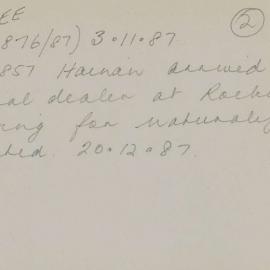 EE
2
876/87) 3.11.87.
857 Hainan arrived
al dealer at Rock
ing for naturali
ted. 20.12.87.